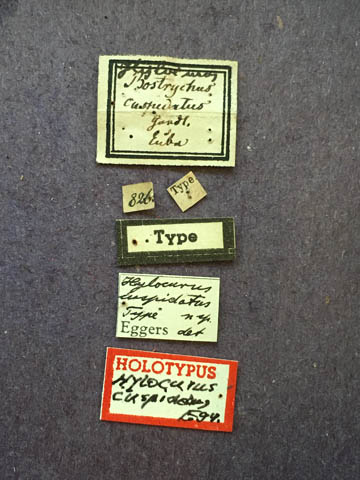 Hylocurus
Bostrychus
cuspidatus
Gundl.
Cuba
826.
Type
Type
Hylocurus
cuspidatus
Type n. sp.
Eggers det
HOLOTYPUS
HYlOCURUS
CUSpidatus
Egg.